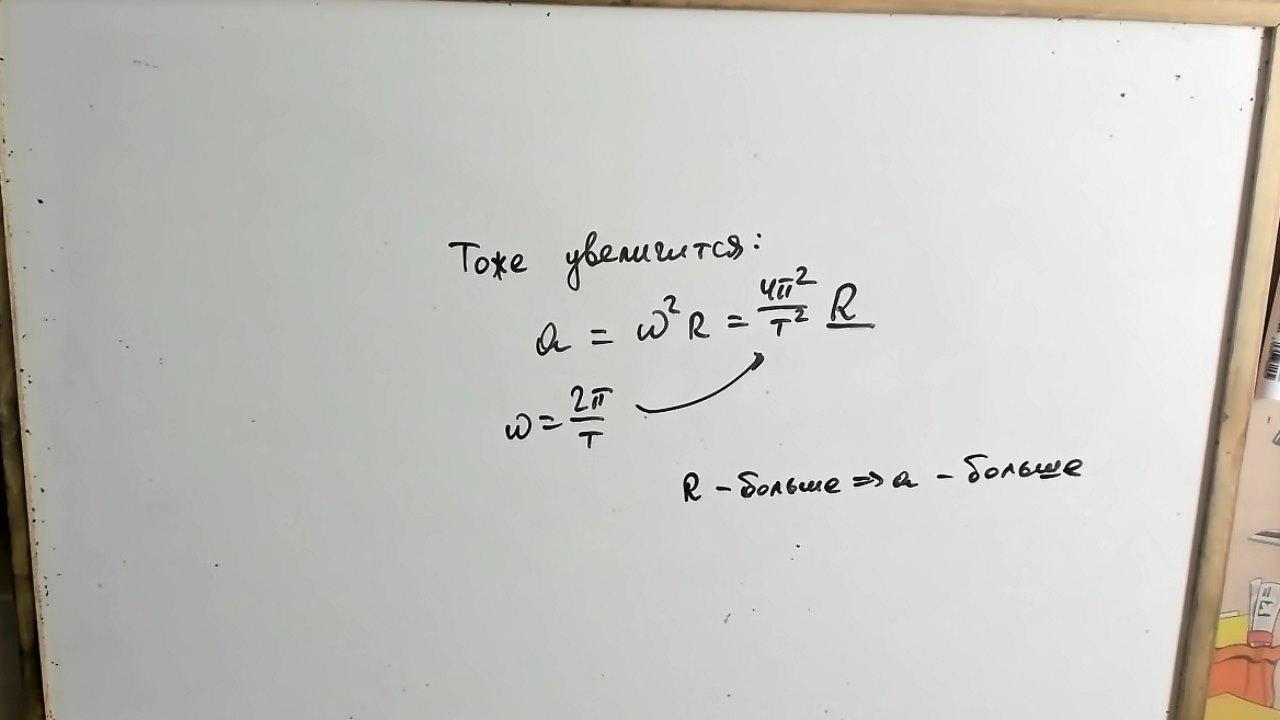 Тоже увеличится:
a = ω²R = 4π²/T² R
ω = 2π/T
R - больше => a - больше